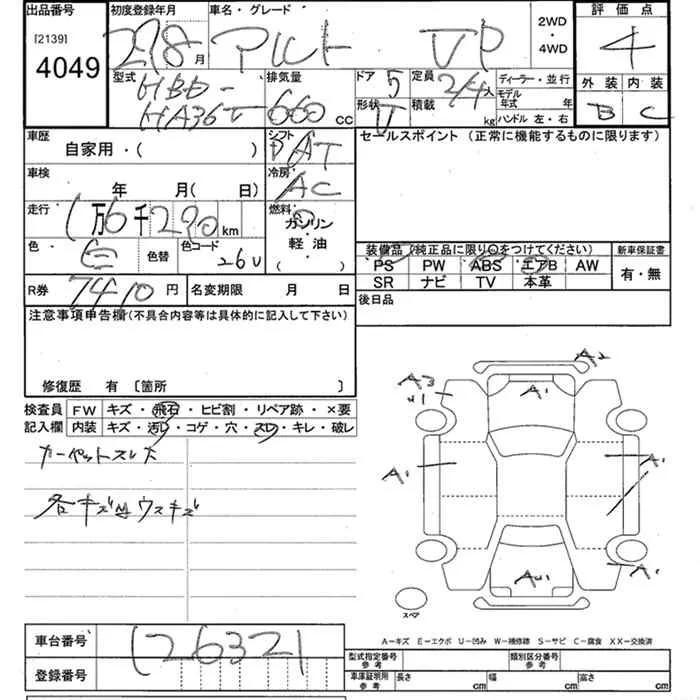 出品番号 初度登録年月 車名・グレード 2WD・4WD 評価点
[2139]
4049 28 8月 アルト VP 4
型式 HBD-HA36V 排気量 660cc ドア 5 定員 2/4人 ディーラー・並行 外装 内装
形状 V 積載 kg モデル年式 年 B C
ハンドル 左・右
車歴 シフト DAT セールスポイント (正常に機能するものに限ります)
自家用・( )
車検 冷房 AC
年 月(日)
走行 1万6千290km 燃料
ガソリン
色 白 色替 色コード 26U 軽油
( )
装備品 (純正品に限り○をつけてください) 新車保証書
PS PW ABS エアB AW 有・無
SR ナビ TV 本革
R券 7410円 名変期限 月 日 後日品
注意事項申告欄(不具合内容等は具体的に記入して下さい)
修復歴 有 [箇所 ]
検査員 FW キズ・飛石・ヒビ割・リペア跡・×要
記入欄 内装 キズ・汚レ・コゲ・穴・スレ・キレ・破レ
カーペットスレ大
各キズ凹ウスキズ
A2
A3 A1
A1 A1
A1
スペア
A-キズ E-エクボ U-凹み W-補修跡 S-サビ C-腐食 XX-交換済
車台番号 126321
登録番号
型式指定番号 参考 類別区分番号 参考
車庫証明用 参考 長さ cm 幅 cm 高さ cm